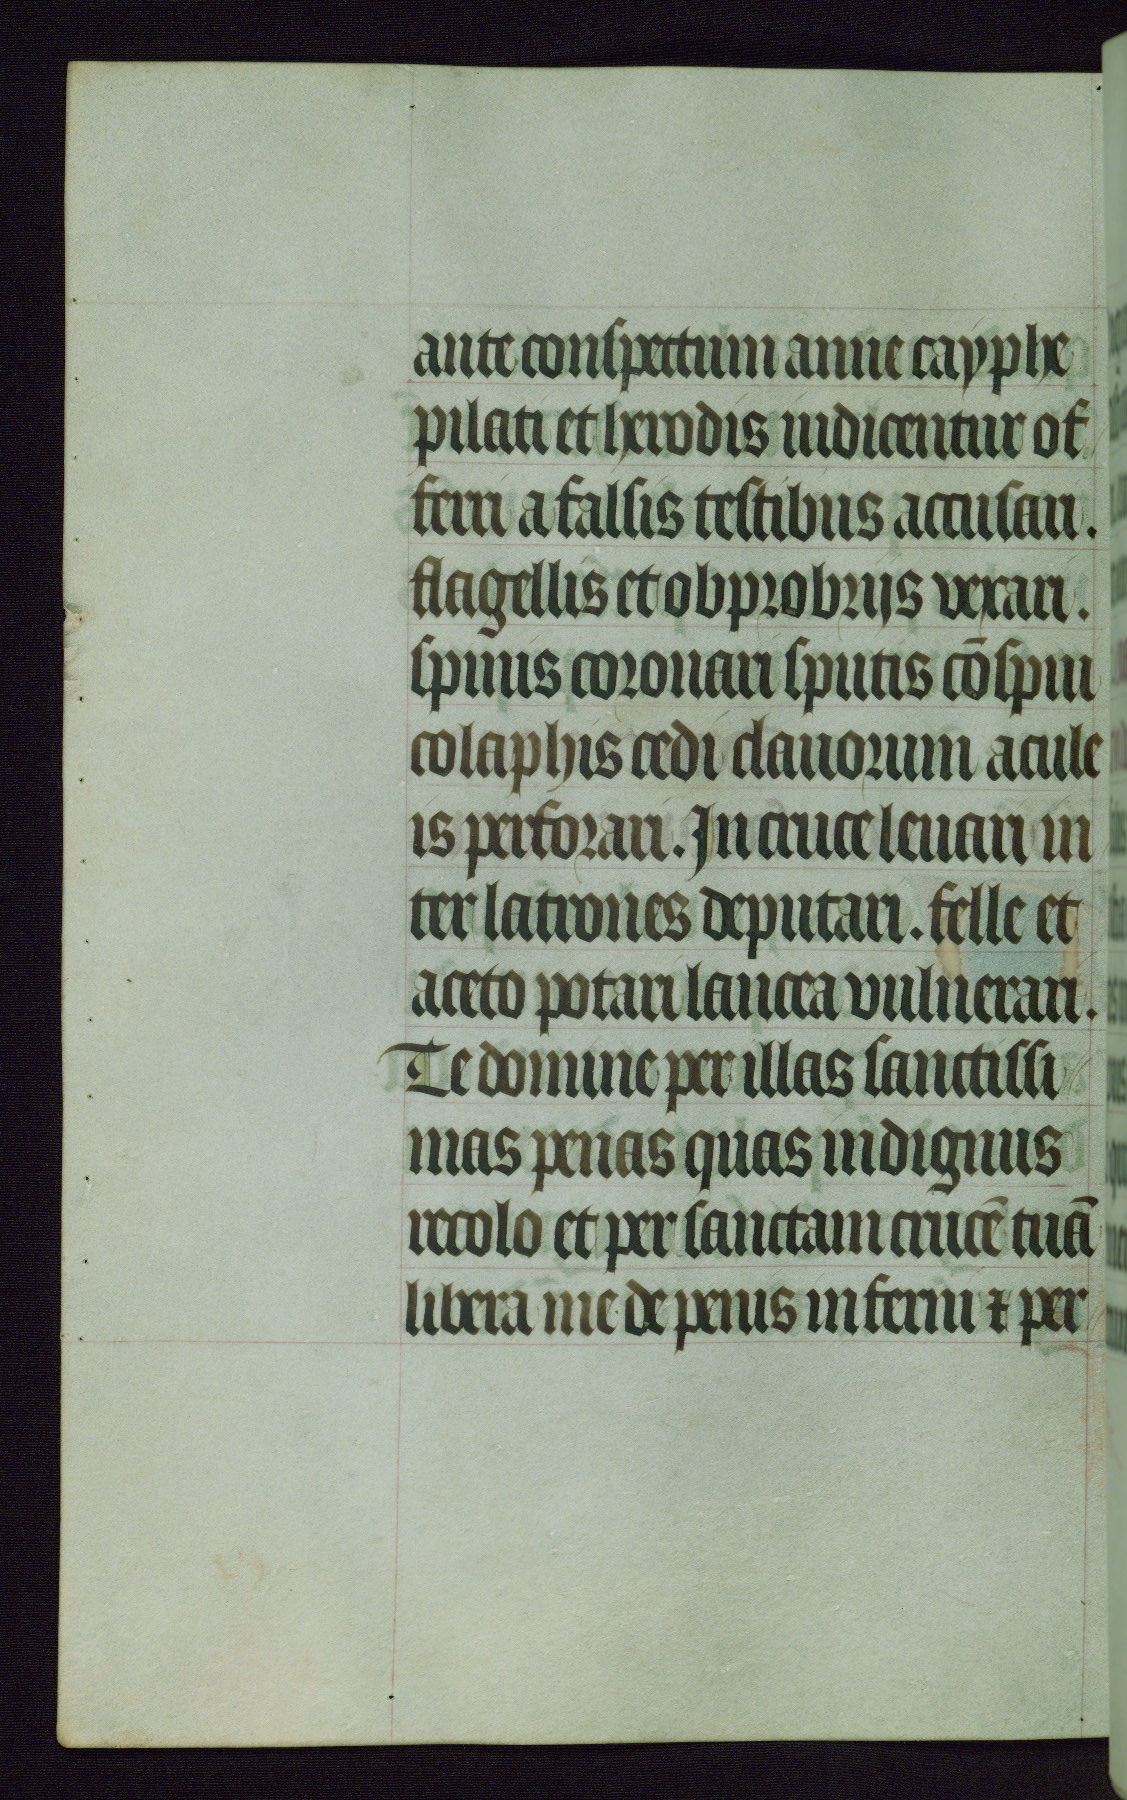 ante conspectum anne cayphe
pilati et herodis iudicentur of
ferri a falsis testibus accusari.
flagellis et obprobrijs vexari.
spinis coronari sputis cōspui
colaphis cedi clauorum acule
is perforari. In cruce leuari in
ter latrones deputari. felle et
aceto potari lancea vulnerari.
Te domine per illas sanctissi
mas penas quas indignus
recolo et per sanctam crucē tuā
libera me de penis inferni ⁊ per